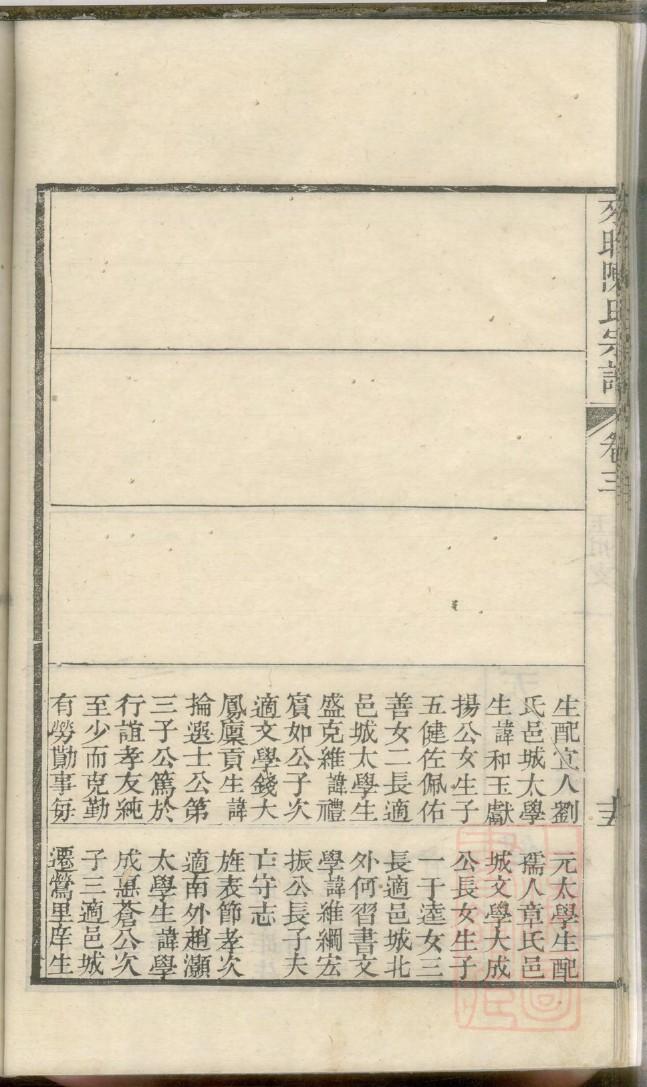 陳氏宗譜
卷三
生配宜人劉
氏邑城太學
生諱和玉獻
揚公女生子
五健佐佩佑
善女二長適
邑城太學生
盛克維諱禮
賔如公子次
適文學錢大
鳳廩貢生諱
掄選士公第
三子公篤於
行誼孝友純
至少而克勤
有勞勩事毎
元太學生配
孺人章氏邑
城文學大成
公長女生子
一于逵女三
長適邑城北
外何習書文
學諱維綱宏
振公長子夫
亡守志
旌表節孝次
適南外趙灝
太學生諱學
成蒼公次
子三適邑城
遷鶯里庠生